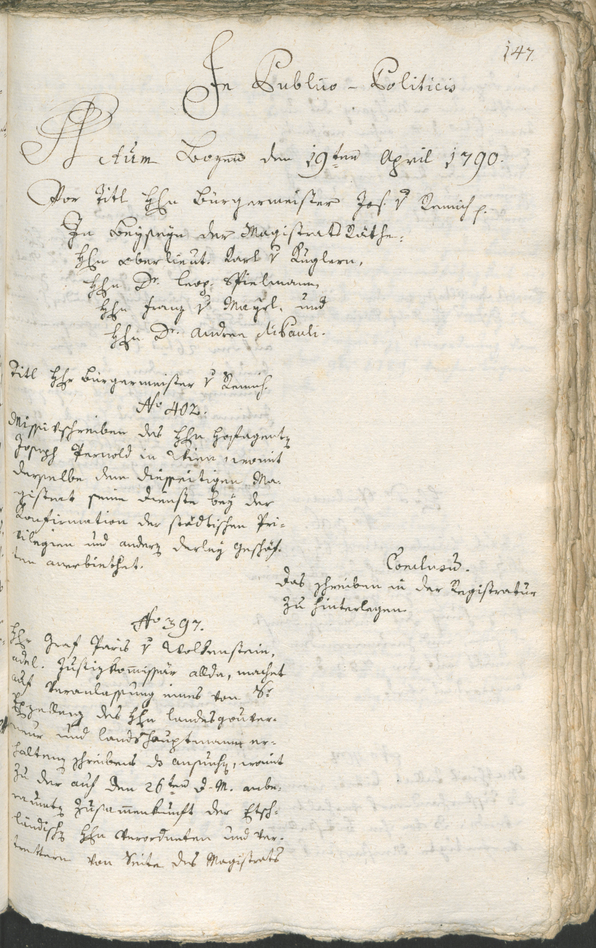 147.
In Publico-Politicis
Actum Bozen den 19ten April 1790.
Vor Titl Hhn Bürgermeister Jos. v Remich p.
In Beyseyn der Magistrats Räthe,
Hhn Oberlieut. Karl v Kuglern,
Hhn Dr. Leop. Spielmann,
Hhn Franz v Mayrl, und
Hhn Dr. Andreen Di Pauli.
Titl Hhr Bürgermeister v Remich.
No 402.
Missivschreiben des Hhn Hofagenten
Joseph Pernold in Wien, womit
derselbe dem diesseitigen Ma-
gistrat seine Dienste bey der
Confirmation der städtischen Pri-
vilegien und andern derley Geschäf-
ten anerbiethet.
Conclusum.
Das Schreiben in der Registratur
zu hinterlegen.
No 397.
Hhr Graf Paris v Wolkenstein,
adel. Justizkommissär allda, machet
auf Veranlassung eines von Sr
Exzellenz des Hhn Landesgouver-
neur und Landshauptmann er-
haltenen Schreibens das Ansuchen, womit
zu der auf den 26ten d. M. anbe-
raumten Zusammenkunft der Etsch-
ländischen Hhn Verordneten und Ver-
trettern von Seite des Magistrats